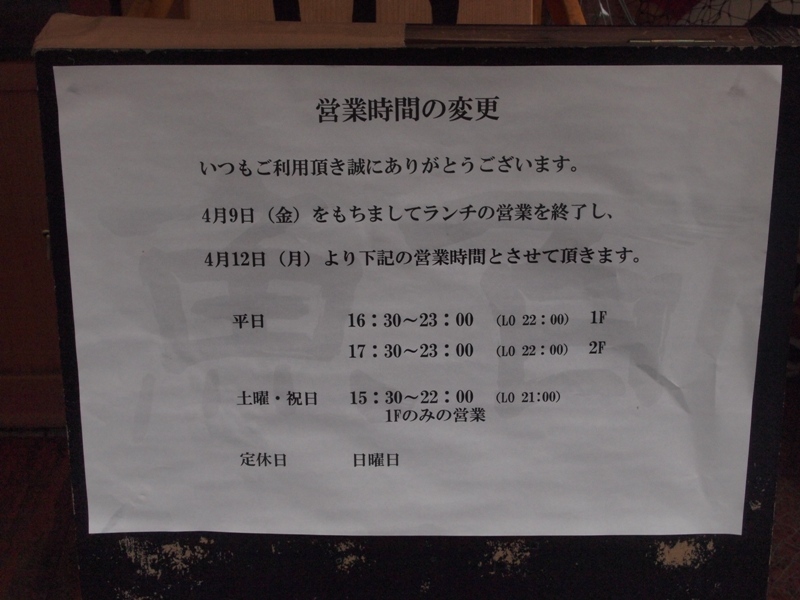 営業時間の変更
いつもご利用頂き誠にありがとうございます。
4月9日（金）をもちましてランチの営業を終了し、
4月12日（月）より下記の営業時間とさせて頂きます。
平日 16：30～23：00 （LO 22：00） 1F
17：30～23：00 （LO 22：00） 2F
土曜・祝日 15：30～22：00 （LO 21:00）
1Fのみの営業
定休日 日曜日